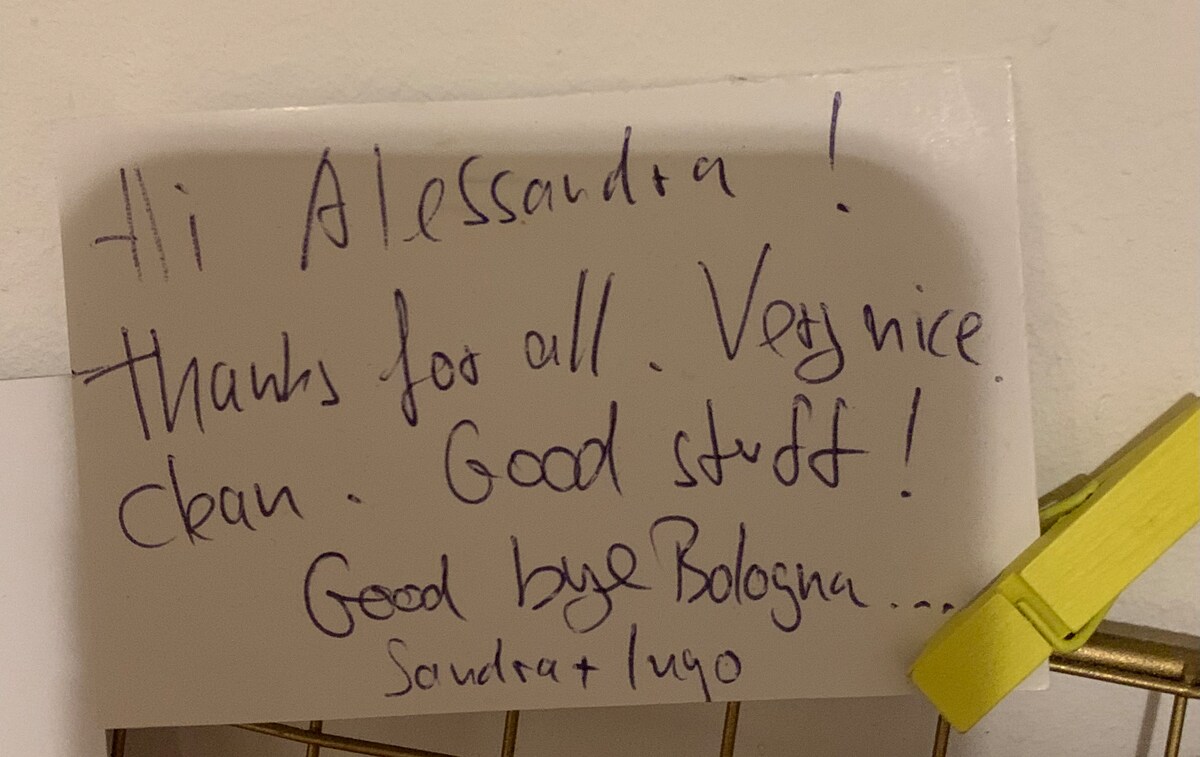 Hi Alessandra !
thanks for all. Very nice.
clean. Good stuff!
Good bye Bologna...
Sandra + Iugo